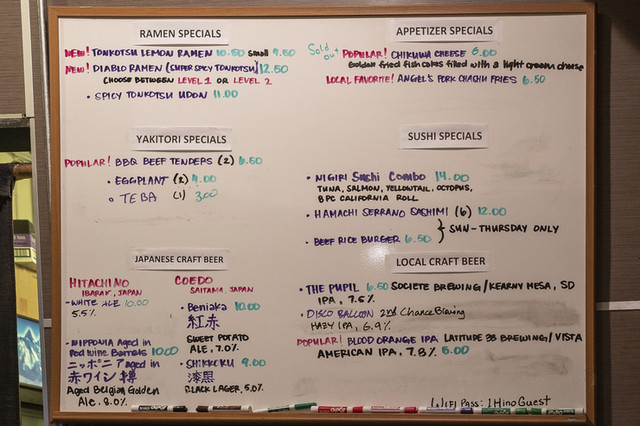 RAMEN SPECIALS
NEW! TONKOTSU LEMON RAMEN 10.50 small 9.50
NEW! DIABLO RAMEN (SUPER SPICY TONKOTSU) 12.50
CHOOSE BETWEEN LEVEL 1 OR LEVEL 2
• SPICY TONKOTSU UDON 11.00
APPETIZER SPECIALS
Sold out
POPULAR! CHIKUWA CHEESE 6.00
Golden fried fish cakes filled with a light cream cheese
LOCAL FAVORITE! ANGEL'S PORK CHASHU FRIES 6.50
YAKITORI SPECIALS
POPULAR! BBQ BEEF TENDERS (2) 6.50
• EGGPLANT (2) 4.00
• TEBA (1) 300
SUSHI SPECIALS
• NIGIRI Sushi Combo 14.00
TUNA, SALMON, YELLOWTAIL, OCTOPUS,
8 PC CALIFORNIA ROLL
• HAMACHI SERRANO SASHIMI (6) 12.00
SUN-THURSDAY ONLY
• BEEF RICE BURGER 6.50
JAPANESE CRAFT BEER
HITACHINO
IBARAK, JAPAN
- WHITE ALE 10.00
5.5%
• NIPPONIA Aged in
Red Wine Barrels 10.00
ニッポニア aged in
赤ワイン 樽
Aged Belgian Golden
Ale. 8.0%
COEDO
SAITAMA, JAPAN
• Beniaka 10.00
紅赤
SWEET POTATO
ALE, 7.0%
• SHIKKOKU 9.00
漆黒
BLACK LAGER, 5.0%
LOCAL CRAFT BEER
• THE PUPIL 6.50 SOCIETE BREWING/KEARNY MESA, SD
IPA, 7.5%
• DISCO BALLOON 2nd Chance Brewing
HAZY IPA, 6.9%
POPULAR! BLOOD ORANGE IPA LATITUDE 33 BREWING/VISTA
AMERICAN IPA, 7.3% 6.00
WIFI PASS: 1HinoGuest